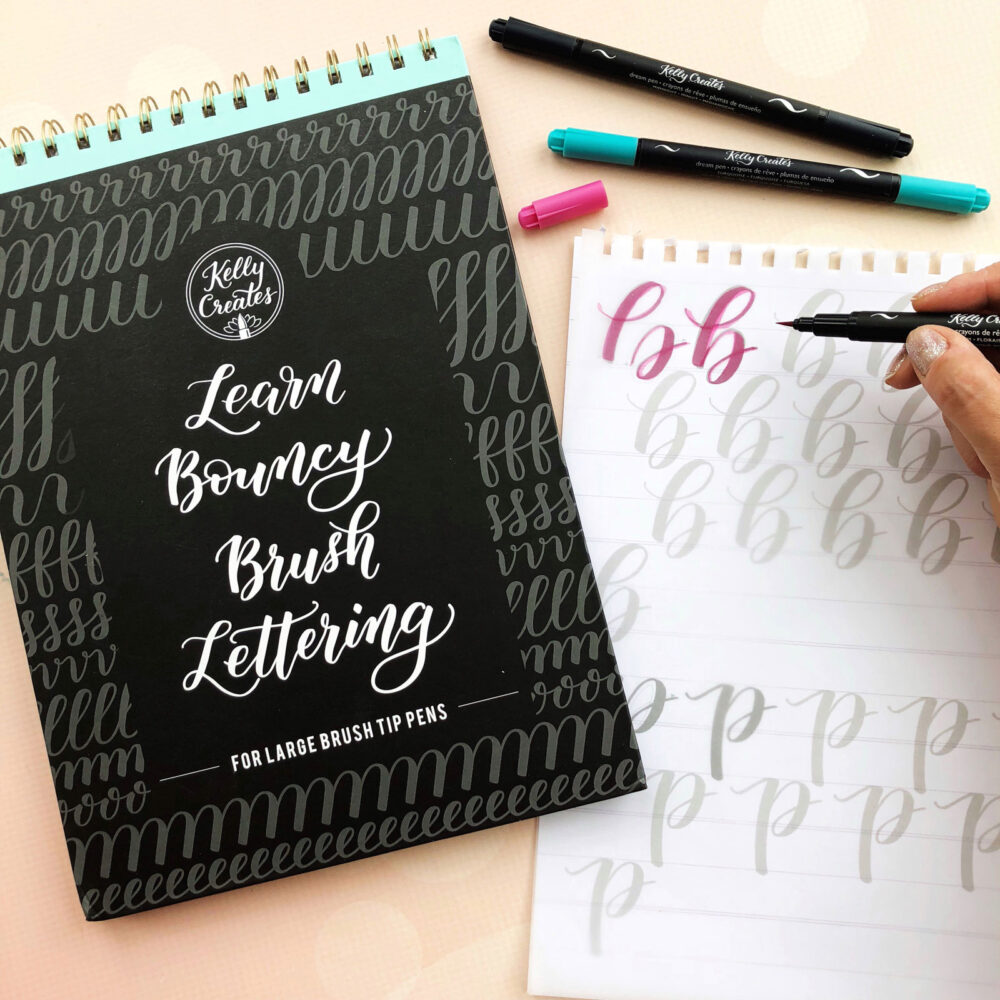 Kelly
Creates
Learn
Bouncy
Brush
Lettering
FOR LARGE BRUSH TIP PENS
Kelly Creates
dream pen • crayons de rêve • plumas de ensueño
Kelly Creates
dream pen • crayons de rêve • plumas de ensueño
TURQUOISE • TURQUOISE • TURQUESA
b b b b
b b b b
b b b b b
b
p p p p
p p p p
p
Kelly Cr
crayons de rêve